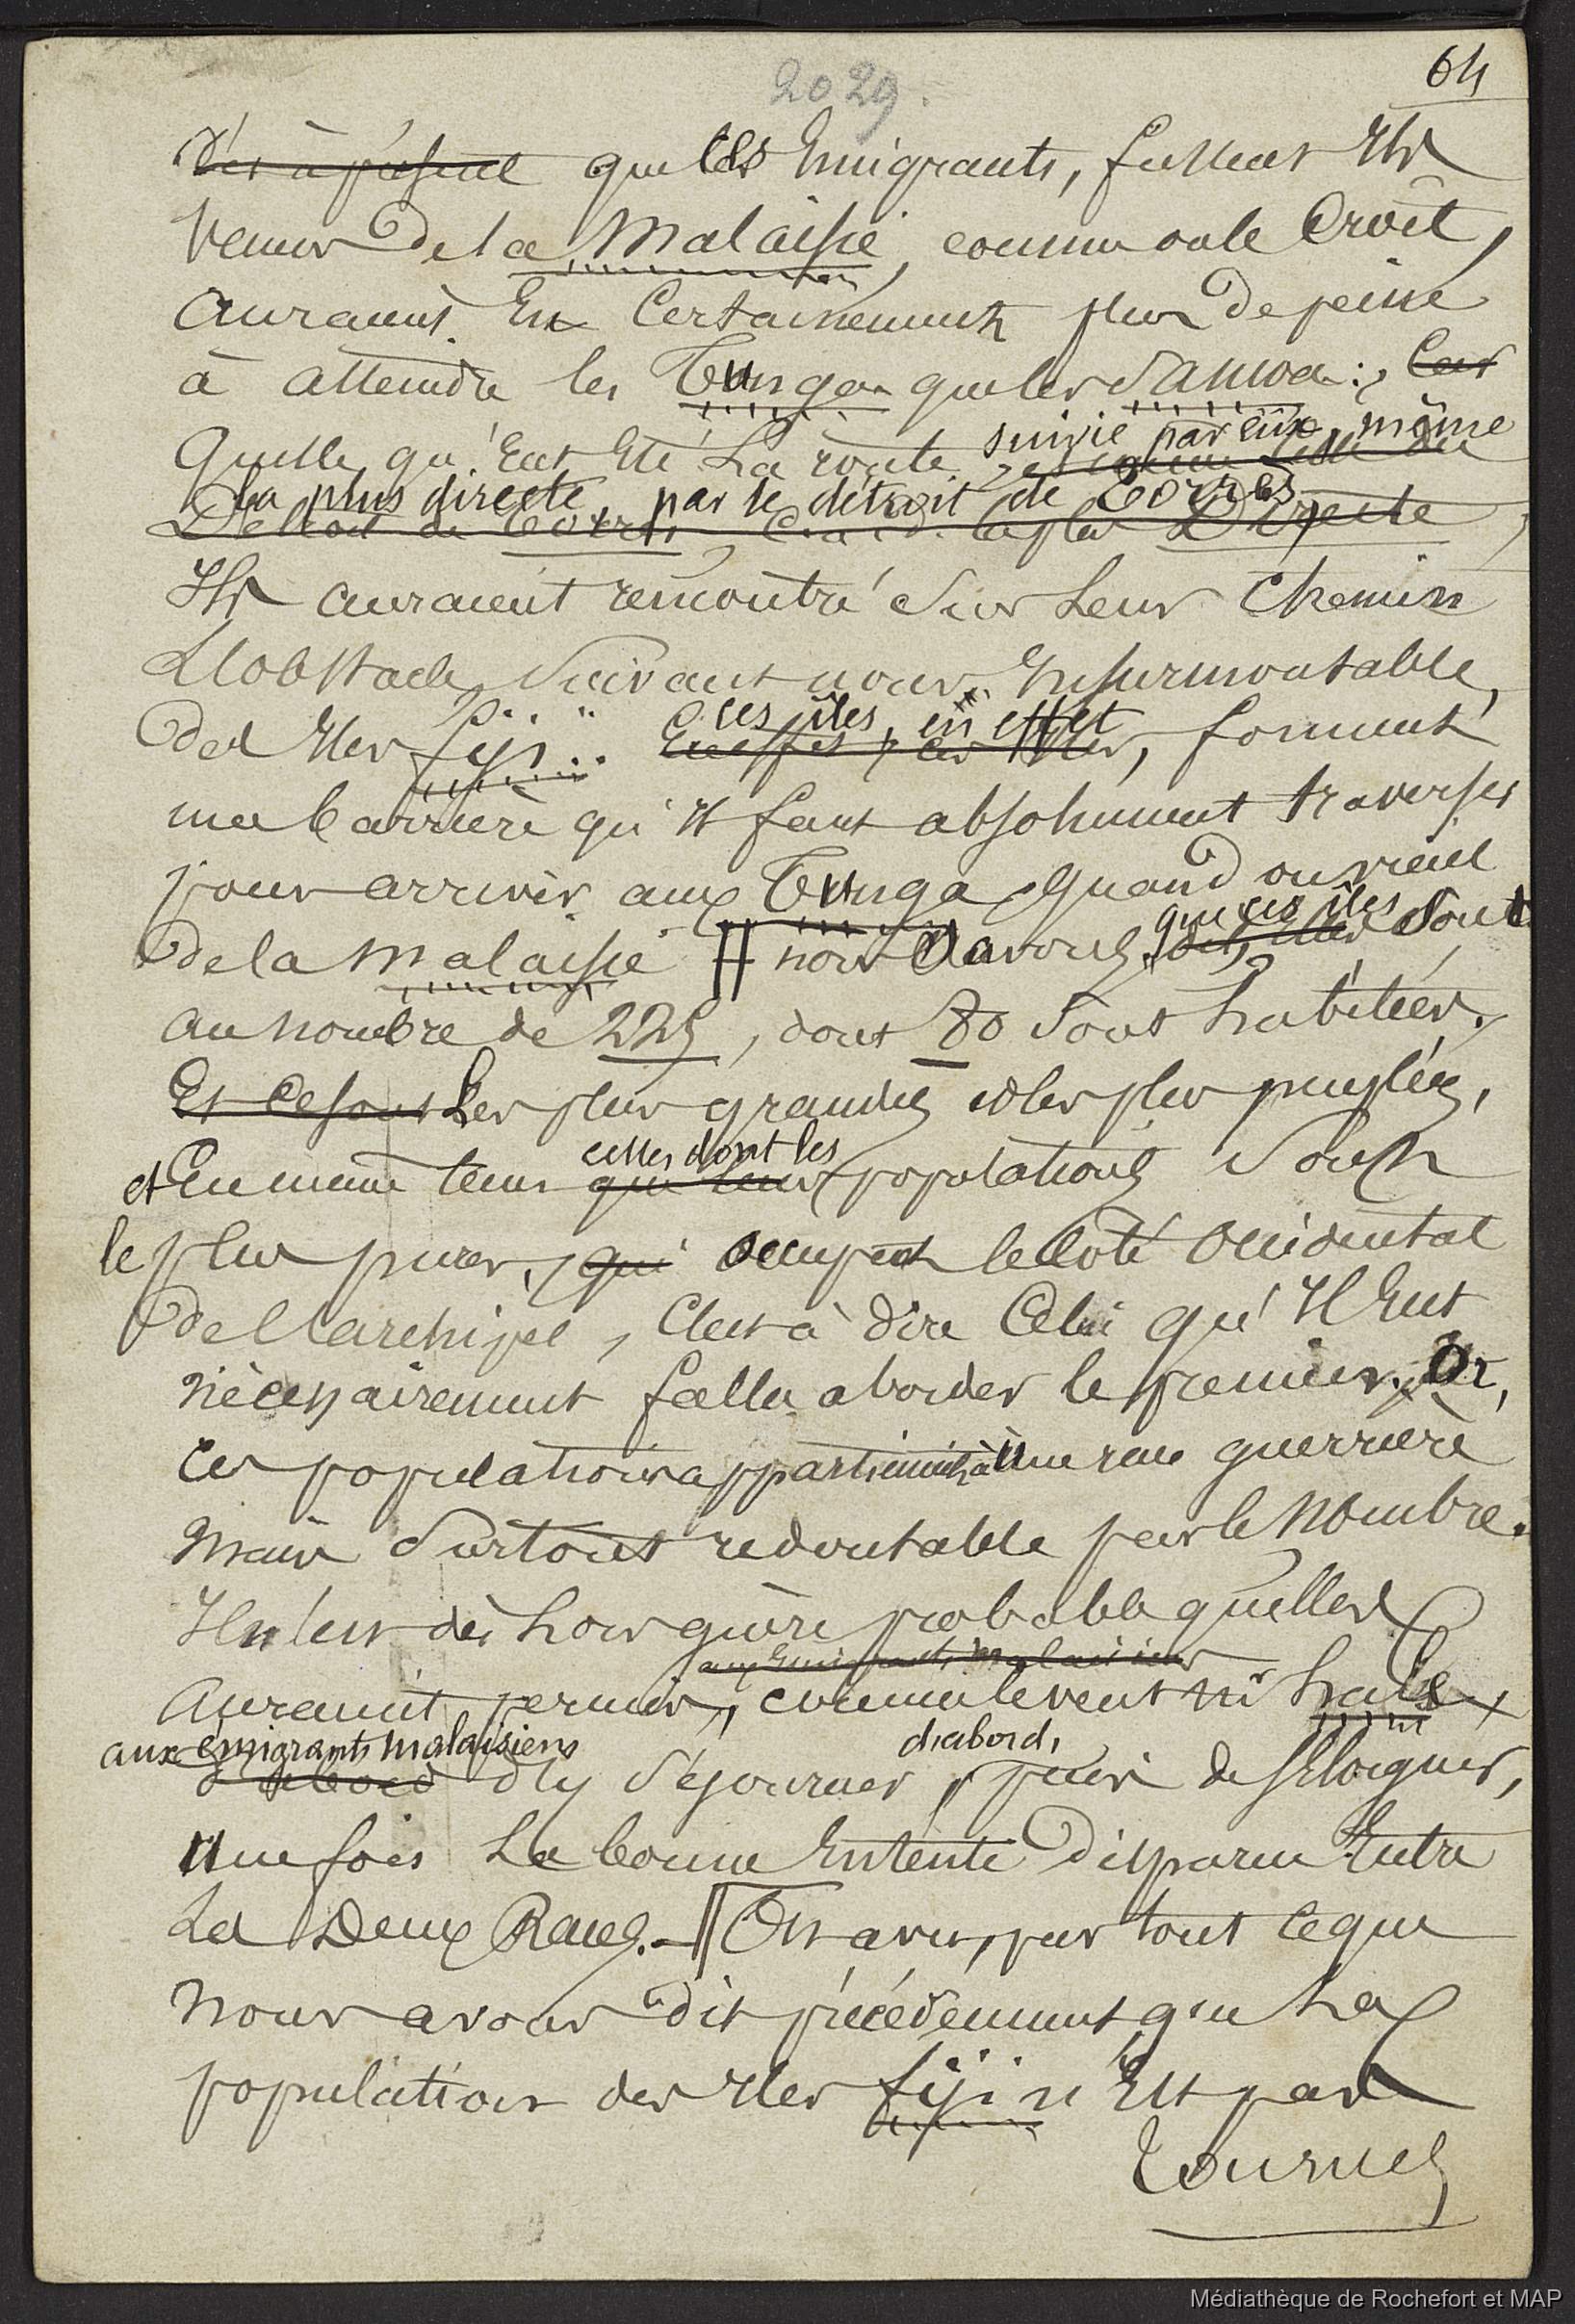 64
2029.
Dès à présent que les Émigrants, fussent Ils
venus de la Malaisie, comme on le Croit,
auraient Eu Certainement plus de peine
à atteindre les Tunga que les Samoa : Car
Quelle qu'Eut Eté La route suivie par eux, même
la plus directe, par le détroit de Torrès,
Détroit de Torrès, c. a. d. la plus Directe,
Ils auraient rencontré Sur Leur Chemin
L'obstacle, Suivant nous, Insurmontable,
des Iles Fiji. ces îles, en effet
En effet, ces Iles, forment
une barrière qu'Il faut absolument traverser
pour arriver aux Tunga, Quand on vient
de la Malaisie // nous Savons que ces îles Sont
au nombre de 225, dont 80 Sont habitées.
Et Ce sont Les plus grandes et les plus peuplées,
et En même tems celles dont les
que leurs populations Sont
le plus pures, qui occupent le Côté Occidental
de l'archipel, C'est à dire Celui qu'Il Eut
nécessairement fallu aborder le premier. Or,
Ces populations appartiennent à Une race guerrière
Mais Surtout redoutable par le Nombre.
Il n'est dès Lors guère probable qu'elles
aux Emigrants malaisiens
Auraient permis, comme le veut Mr hale
aux émigrants malaisiens d'abord,
D'abord d'y Séjourner, puis de s'Eloigner,
Une fois La bonne Entente Disparue Entre
Les Deux Races. — // On a vu, par tout ce que
Nous avons dit précédemment, que La
population des Iles Fiji n'Est pas
Tournez
Médiathèque de Rochefort et MAP